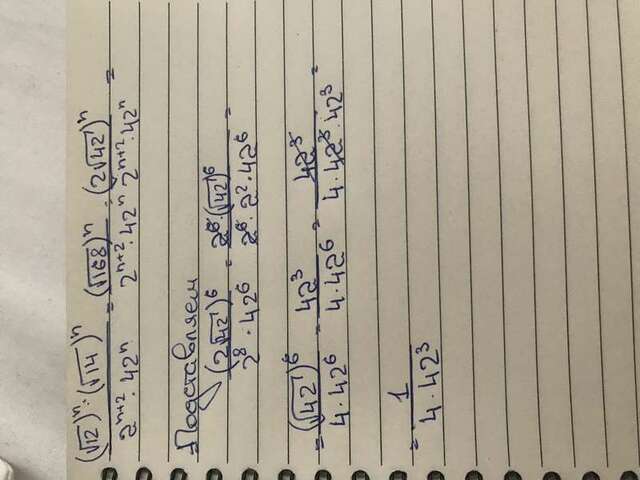 (√12)ⁿ · (√14)ⁿ / 2ⁿ⁺² · 42ⁿ = (√168)ⁿ / 2ⁿ⁺² · 42ⁿ = (2√42)ⁿ / 2ⁿ⁺² · 42ⁿ =
Подставляем
(2√42)⁶ / 2⁸ · 42⁶ = 2⁶ · (√42)⁶ / 2⁶ · 2² · 42⁶ =
= (√42)⁶ / 4 · 42⁶ = 42³ / 4 · 42⁶ = 42³ / 4 · 42³ · 42³ =
= 1 / 4 · 42³